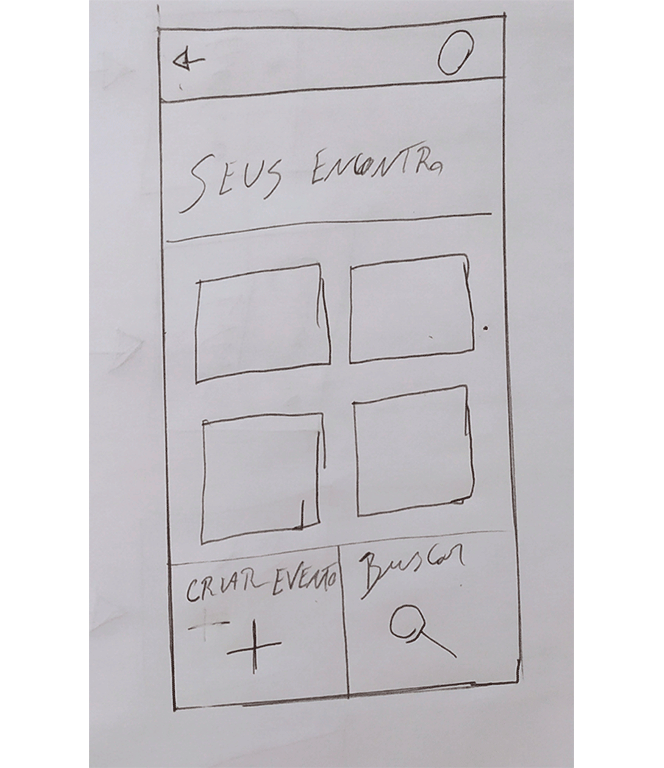 SEUS ENCONTRO
CRIAR EVENTO
Buscar